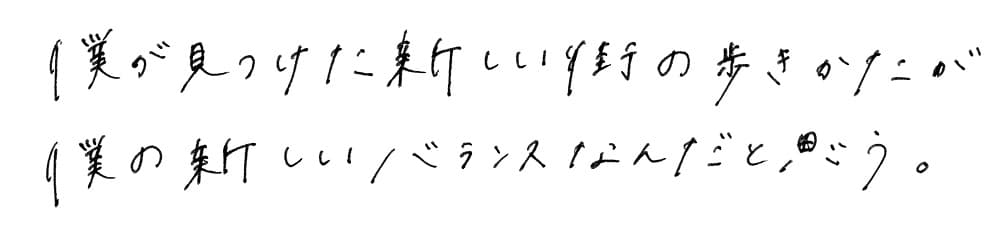 僕が見つけた新しい街の歩きかたが
僕の新しいバランスなんだと思う。